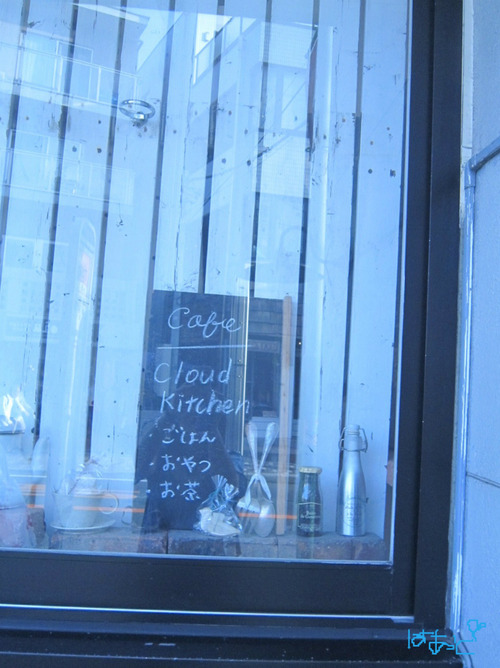 Cafe
Cloud
Kitchen
・ごはん
・おやつ
・お茶